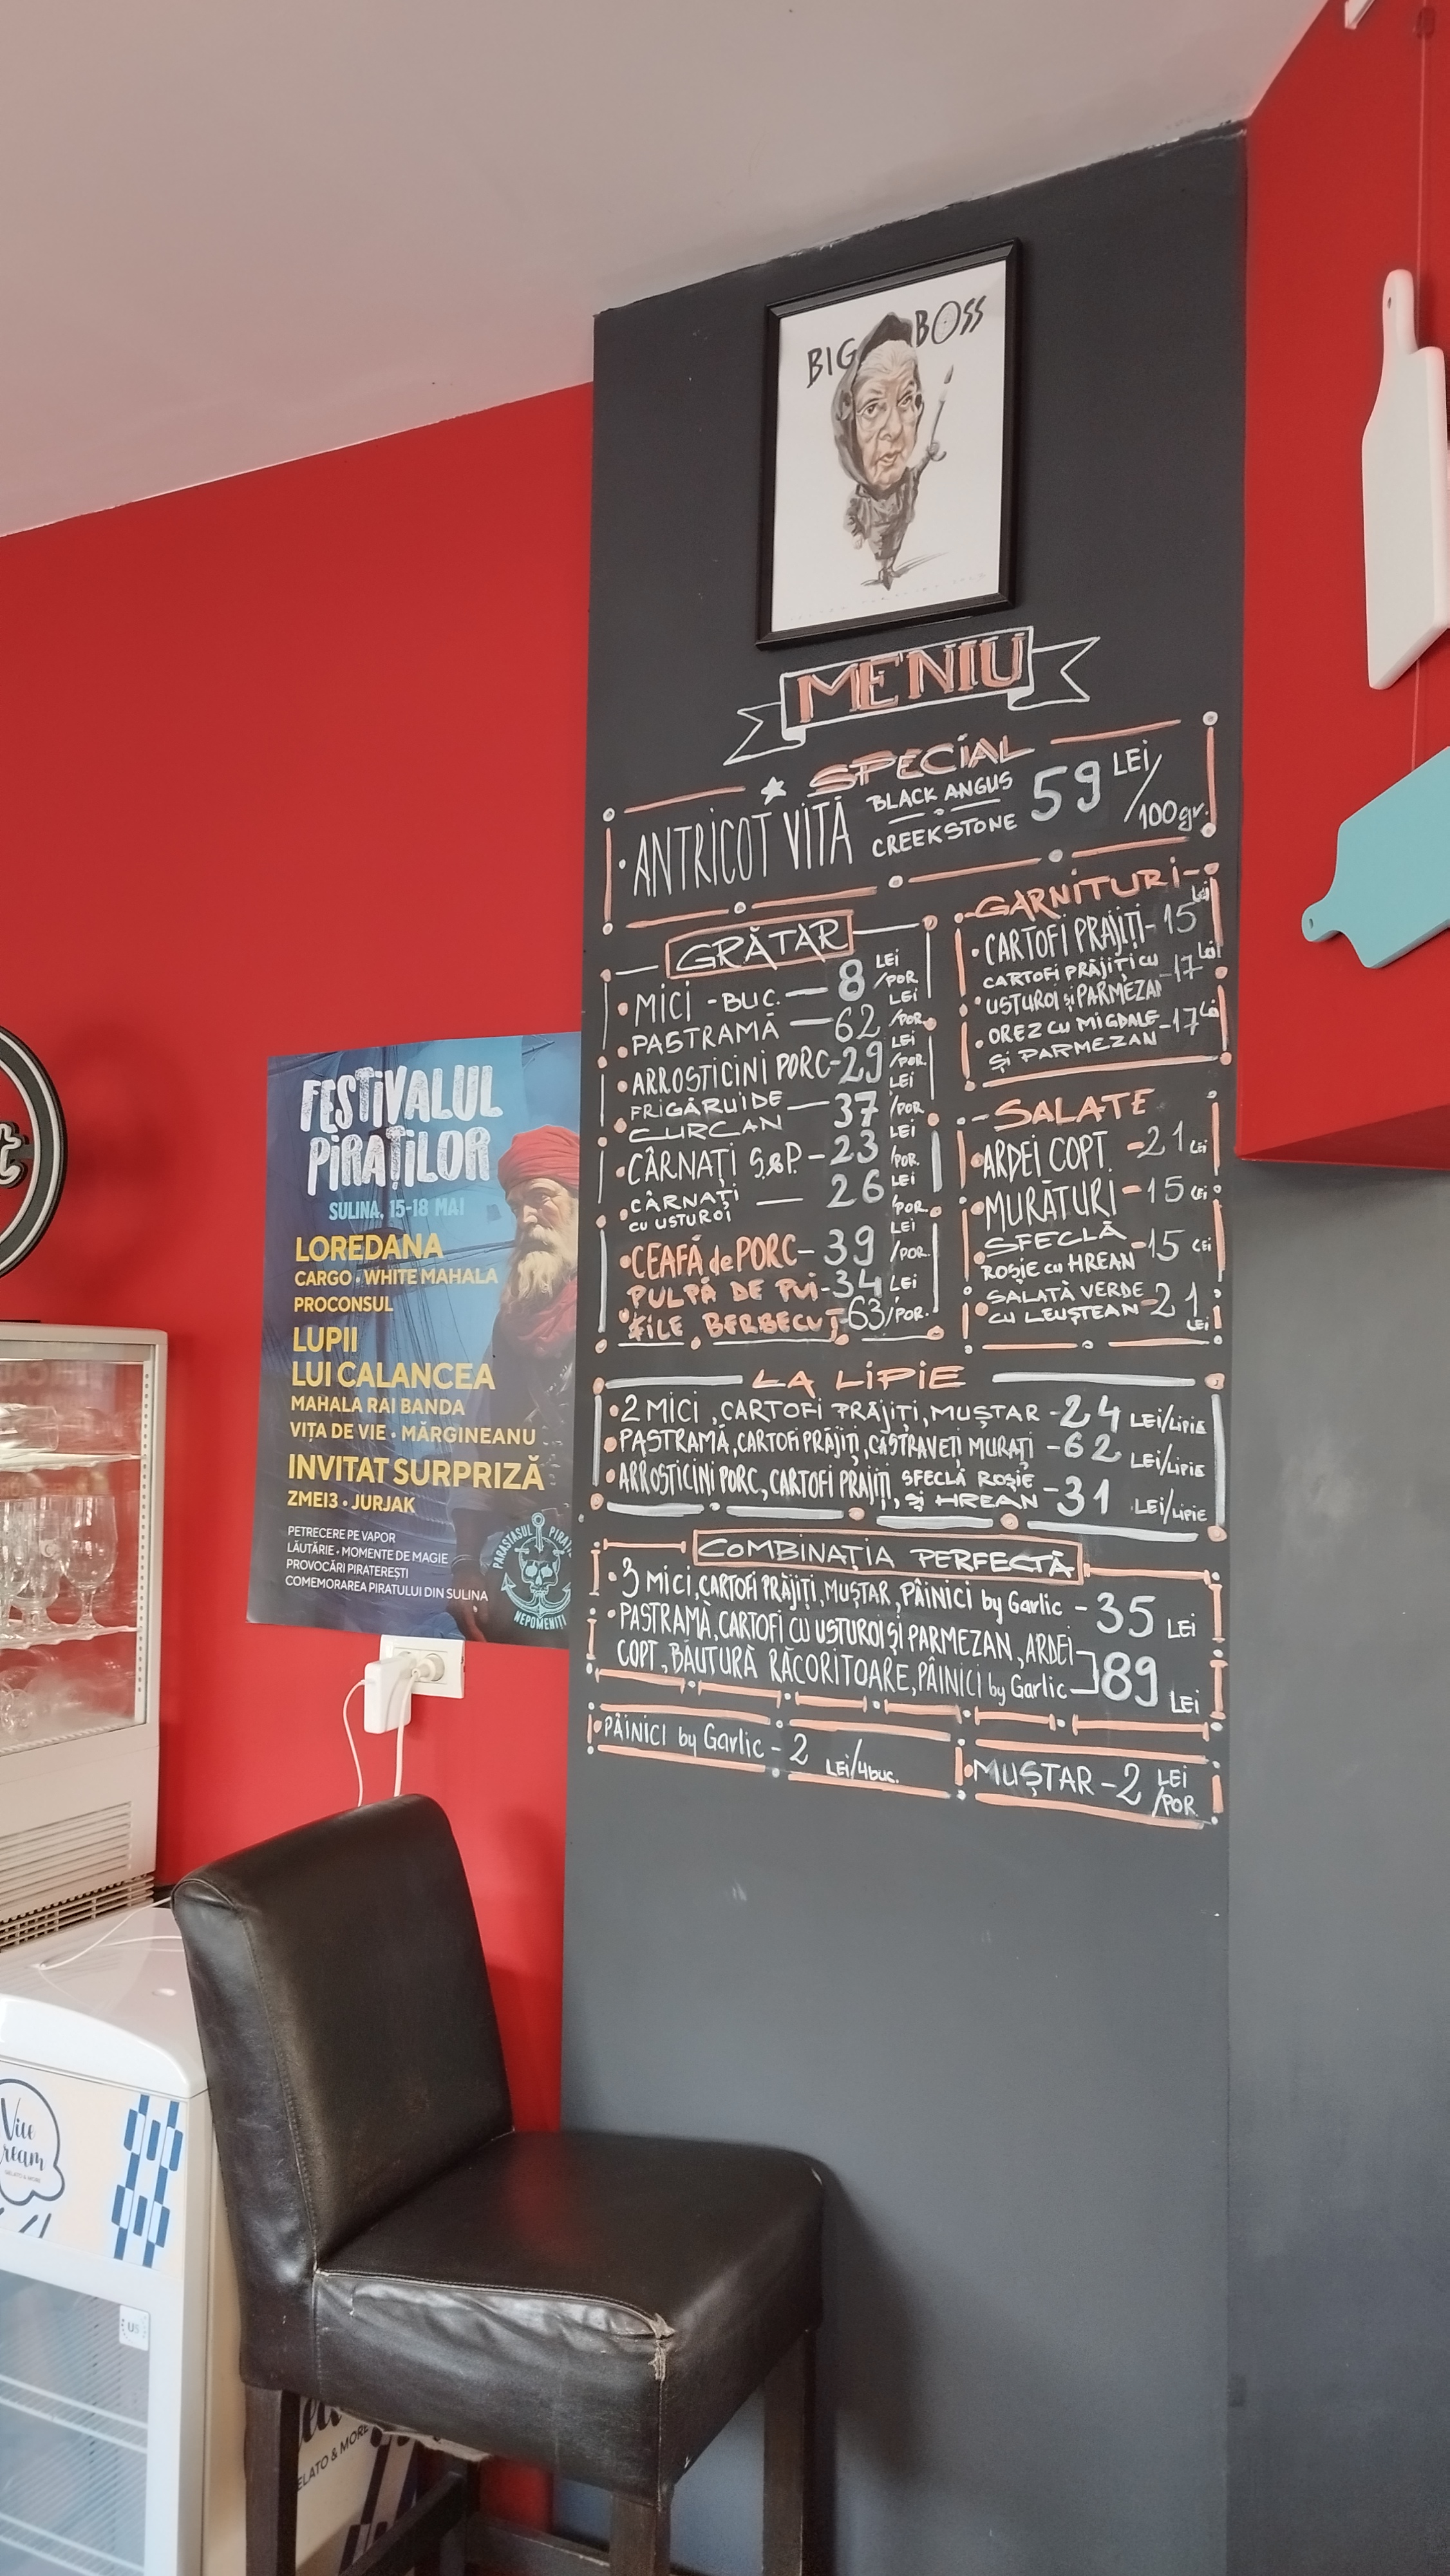 BIG BOSS
MENIU
SPECIAL
ANTRICOT VITĂ BLACK ANGUS CREEKSTONE 59 LEI/100gr.
GRĂTAR
MICI - BUC. — 8 LEI/POR
PASTRAMĂ — 62 LEI/POR.
ARROSTICINI PORC - 29 LEI/POR.
FRIGĂRUI DE CURCAN — 37 LEI/POR.
CÂRNAȚI S&P. - 23 LEI/POR.
CÂRNAȚI CU USTUROI — 26 LEI/POR.
CEAFĂ de PORC - 39 LEI/POR.
PULPĂ DE PUI - 34 LEI
FILE BERBECUȚ - 63 /POR.
GARNITURI
CARTOFI PRĂJIȚI - 15 Lei
CARTOFI PRĂJIȚI CU
USTUROI și PARMEZAN - 17 Lei
OREZ CU MIGDALE
ȘI PARMEZAN - 17 Lei
SALATE
ARDEI COPT. - 21 LEI
MURĂTURI - 15 LEI
SFECLĂ
ROȘIE cu HREAN - 15 LEI
SALATĂ VERDE
CU LEUȘTEAN - 21 LEI
LA LIPIE
2 MICI, CARTOFI PRĂJIȚI, MUȘTAR - 24 LEI/LIPIE
PASTRAMĂ, CARTOFI PRĂJIȚI, CASTRAVEȚI MURAȚI - 62 LEI/LIPIE
ARROSTICINI PORC, CARTOFI PRĂJIȚI, SFECLĂ ROȘIE ȘI HREAN - 31 LEI/LIPIE
COMBINAȚIA PERFECTĂ
3 MICI, CARTOFI PRĂJIȚI, MUȘTAR, PÂINICI by Garlic - 35 LEI
PASTRAMĂ, CARTOFI CU USTUROI ȘI PARMEZAN, ARDEI
COPT, BĂUTURĂ RĂCORITOARE, PÂINICI by Garlic 89 LEI
PÂINICI by Garlic - 2 LEI/4buc.
MUȘTAR - 2 LEI/POR
FESTIVALUL
PIRAȚILOR
SULINA, 15-18 MAI
LOREDANA
CARGO • WHITE MAHALA
PROCONSUL
LUPII
LUI CALANCEA
MAHALA RAI BANDA
VIȚA DE VIE • MĂRGINEANU
INVITAT SURPRIZĂ
ZMEI3 • JURJAK
PETRECERE PE VAPOR
LĂUTĂRIE • MOMENTE DE MAGIE
PROVOCĂRI PIRATEREȘTI
COMEMORAREA PIRATULUI DIN SULINA
PARASTASUL
NEPOMENIȚI
Vice
ream
GELATO & MORE
ELATO & MORE